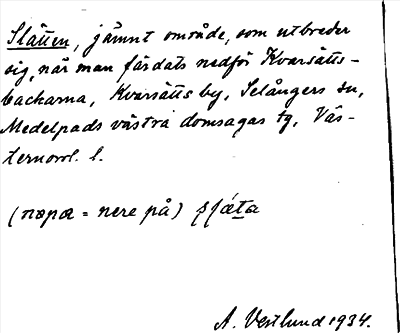 Slätten, jämnt område, som utbreder
sig, när man färdats nedför Kvarsätts-
backarna, Kvarsätts by, Selångers sn,
Medelpads västra domsagas tg, Väs-
ternorrl. l.
= nere på)
A. Vestlund 1934.